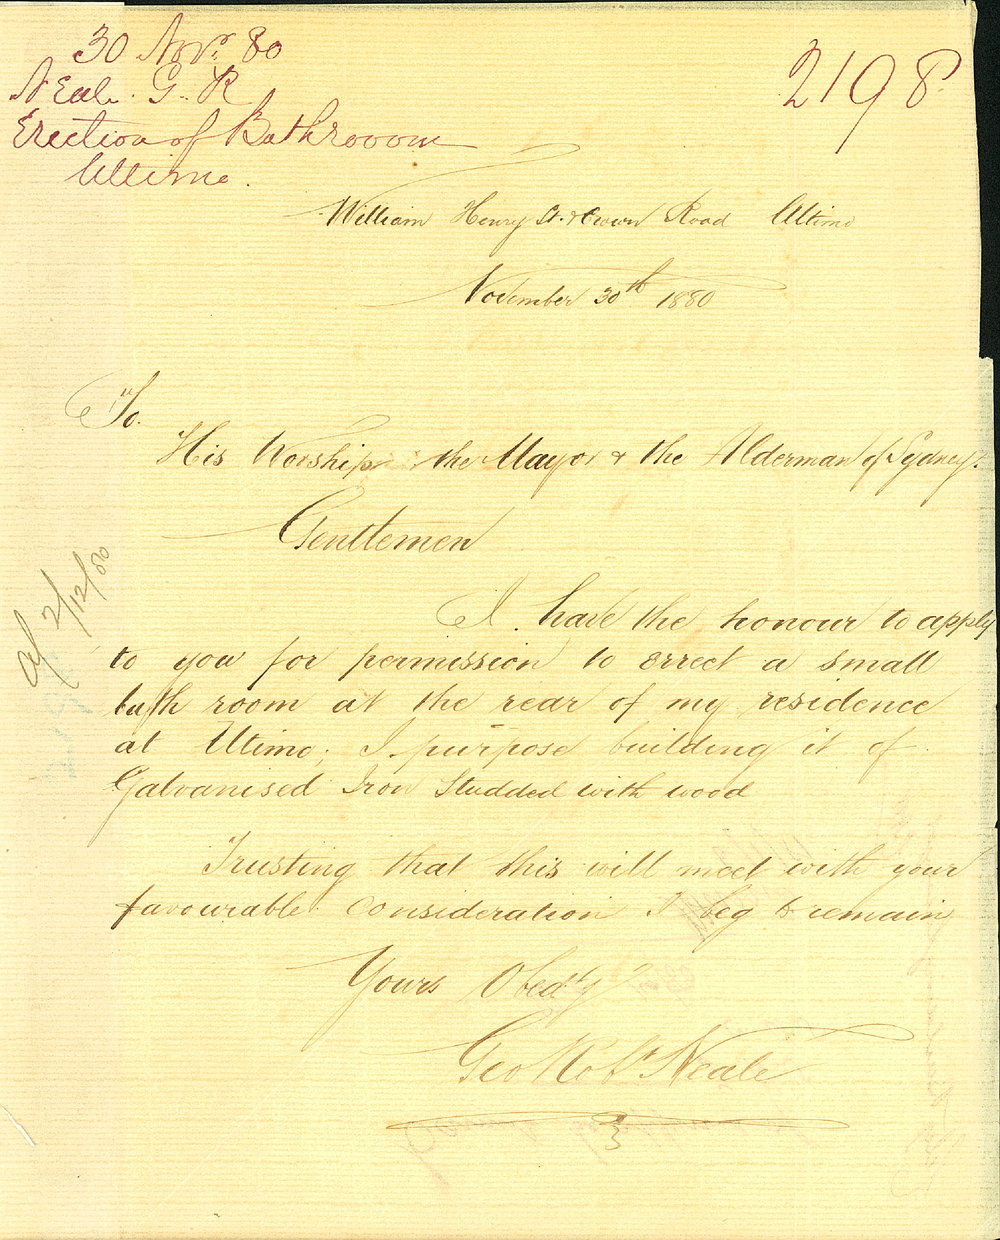 30 Novr. 80
Neale. G. R
Erection of Bathrooom
Ultimo.
2198
William Henry St. & Crown Road Ultimo
November 30th 1880
To.
His Worship the Mayor & the Alderman of Sydney.
Gentlemen
I have the honour to apply
to you for permission to errect a small
bath room at the rear of my residence
at Utimo; I purpose building it of
Galvanised Iron Studded with wood
Trusting that this will meet with your
favourable consideration I beg to remain
Yours Obedtly
Geo Robt Neale
2/12/80